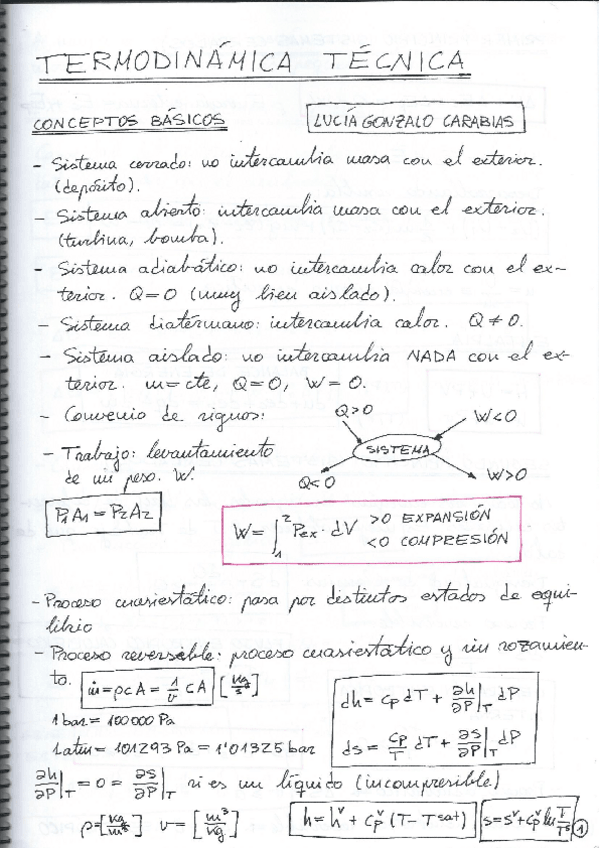 TERMODINÁMICA TÉCNICA
CONCEPTOS BÁSICOS
LUCÍA GONZALO CARABIAS
- Sistema cerrado: no intercambia masa con el exterior.
(depósito).
- Sistema abierto: intercambia masa con el exterior.
(turbina, bomba).
- Sistema adiabático: no intercambia calor con el ex-
terior. Q=0 (muy bien aislado).
- Sistema diatérmano: intercambia calor. Q ≠ 0.
- Sistema aislado: no intercambia NADA con el ex-
terior. m=cte, Q=0, W=0.
- Convenio de signos:
Q>0
W<0
SISTEMA
Q<0
W>0
- Trabajo: levantamiento
de un peso. W.
P₁A₁ = P₂A₂
W = ∫₁² Pex · dV >0 EXPANSIÓN
<0 COMPRESIÓN
- Proceso cuasiestático: pasa por distintos estados de equi-
librio
- Proceso reversible: proceso cuasiestático y sin rozamien-
to.
ṁ = ρcA = 1/v cA [kg/s]
dh = cp dT + ∂h/∂P|T dP
ds = cp/T dT + ∂s/∂P|T dP
1 bar = 100000 Pa
1 atm = 101293 Pa = 1'01325 bar
∂h/∂P|T = 0 = ∂s/∂P|T si es un líquido (incompresible)
ρ=[kg/m³] v=[m³/kg]
h = hᵛ + cpᵛ (T - Tsat)
s = sᵛ + cpᵛ ln T/Ts
1